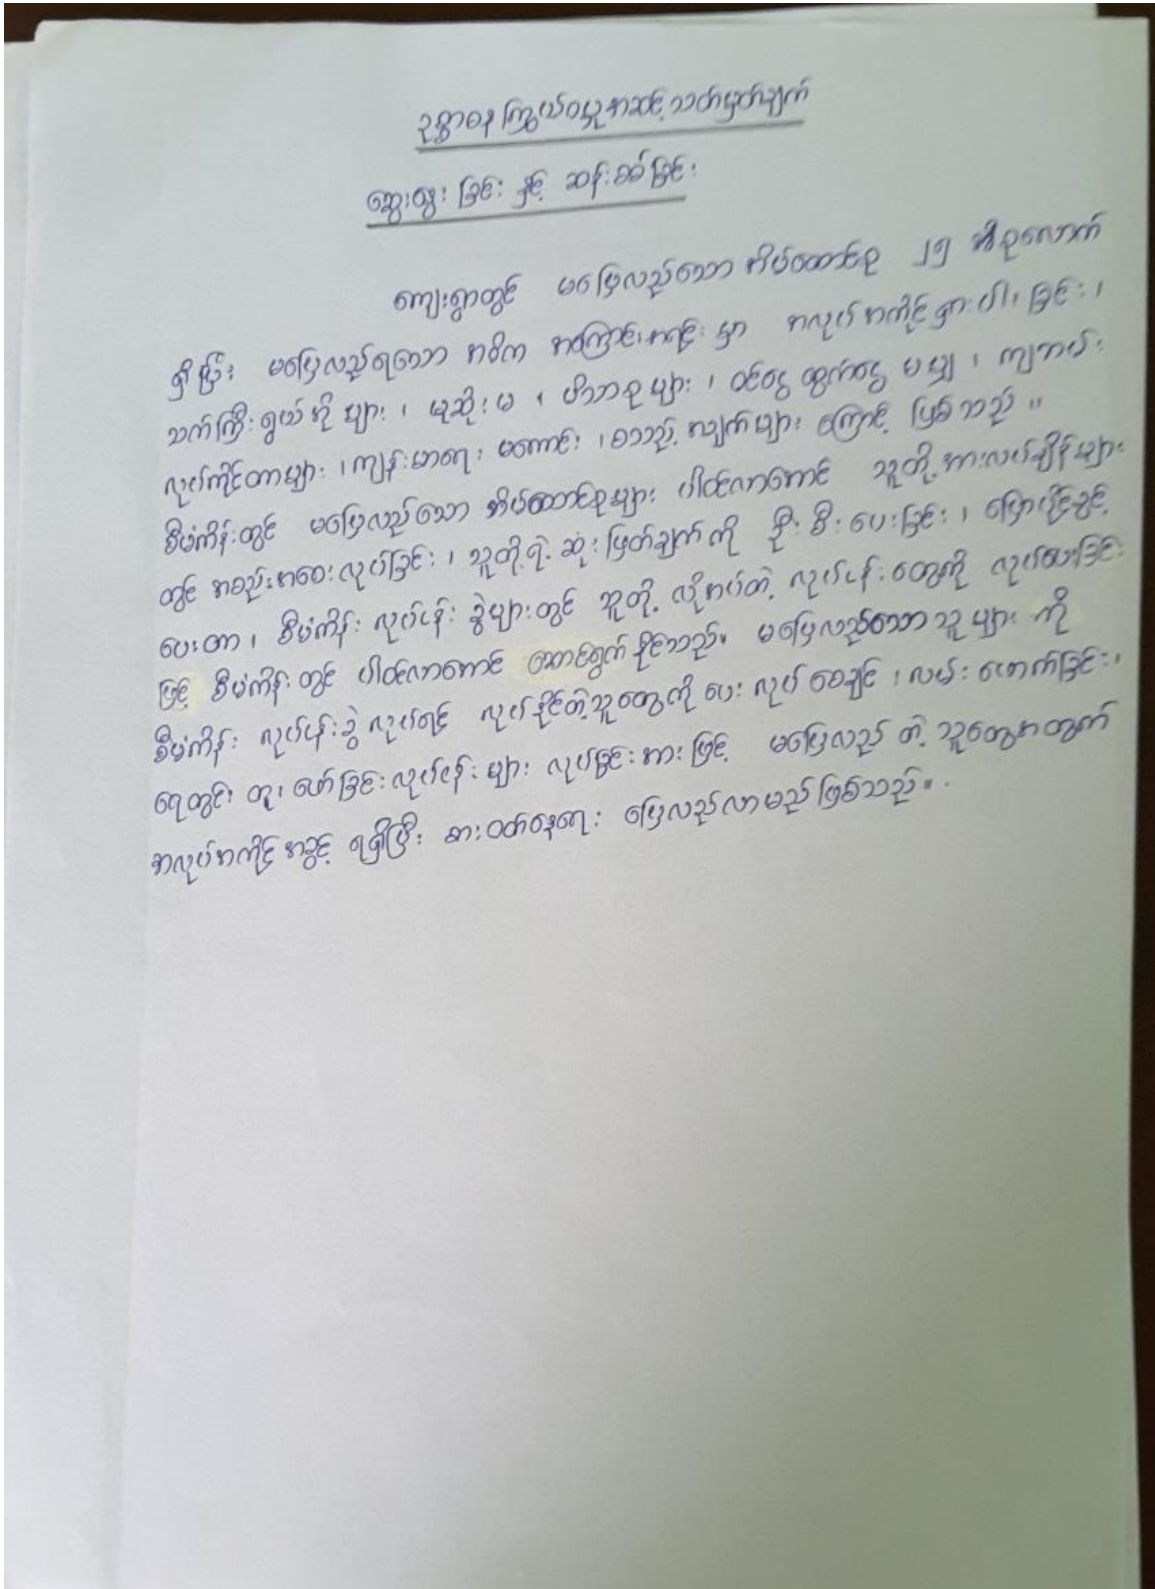 ဥစ္စာဓန ကြွယ်ဝမှုအဆင့် သတ်မှတ်ချက်
ဆွေးနွေးခြင်း နှင့် ဆန်းစစ်ခြင်း
ကျေးရွာတွင် မပြေလည်သော အိမ်ထောင်စု ၂၅ အိမ်စုလောက်
ရှိပြီး မပြေလည်ရသော အဓိက အကြောင်းအရင်းမှာ အလုပ်အကိုင်ရှားပါးခြင်း၊
သက်ကြီးရွယ်အိုများ၊ မုဆိုးမ၊ မိသားစုများ၊ ဝင်ငွေ ထွက်ငွေ မမျှ၊ ကျဘမ်း
လုပ်ကိုင်တာများ၊ ကျန်းမာရေး မကောင်း၊ စသည့် အချက်များ ကြောင့် ဖြစ်သည်။
စီမံကိန်းတွင် မပြေလည်သော အိမ်ထောင်စုများ ပါဝင်လာအောင် သူတို့အားလပ်ချိန်များ
တွင် အစည်းအဝေးလုပ်ခြင်း၊ သူတို့ရဲ့ ဆုံးဖြတ်ချက်ကို ဦးစီးပေးခြင်း၊ ပြောပိုင်ခွင့်
ပေးတာ၊ စီမံကိန်း လုပ်ငန်းခွဲများတွင် သူတို့ လိုအပ်တဲ့ လုပ်ငန်းတွေကို လုပ်ပေးခြင်း
ဖြင့် စီမံကိန်းတွင် ပါဝင်လာအောင် ဆောင်ရွက်နိုင်သည်။ မပြေလည်သောသူများ ကို
စီမံကိန်း လုပ်ငန်းခွဲ လုပ်ရင် လုပ်နိုင်တဲ့သူတွေကို ပေးလုပ်စေချင်၊ လမ်းဖောက်ခြင်း၊
ရေတွင်းတူးဖော်ခြင်းလုပ်ငန်းများ လုပ်ခြင်းအားဖြင့် မပြေလည်တဲ့သူတွေအတွက်
အလုပ်အကိုင်အခွင့် ရရှိပြီး စားဝတ်နေရေး ပြေလည်လာမည်ဖြစ်သည်။